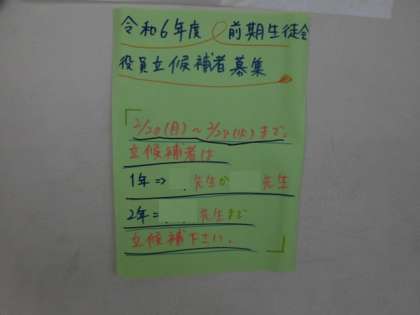 令和6年度 前期生徒会
役員立候補者募集
「2/20(月)~2/28(火)まで。
立候補者は
1年⇒ 先生か 先生
2年= 先生まで
立候補下さい。」